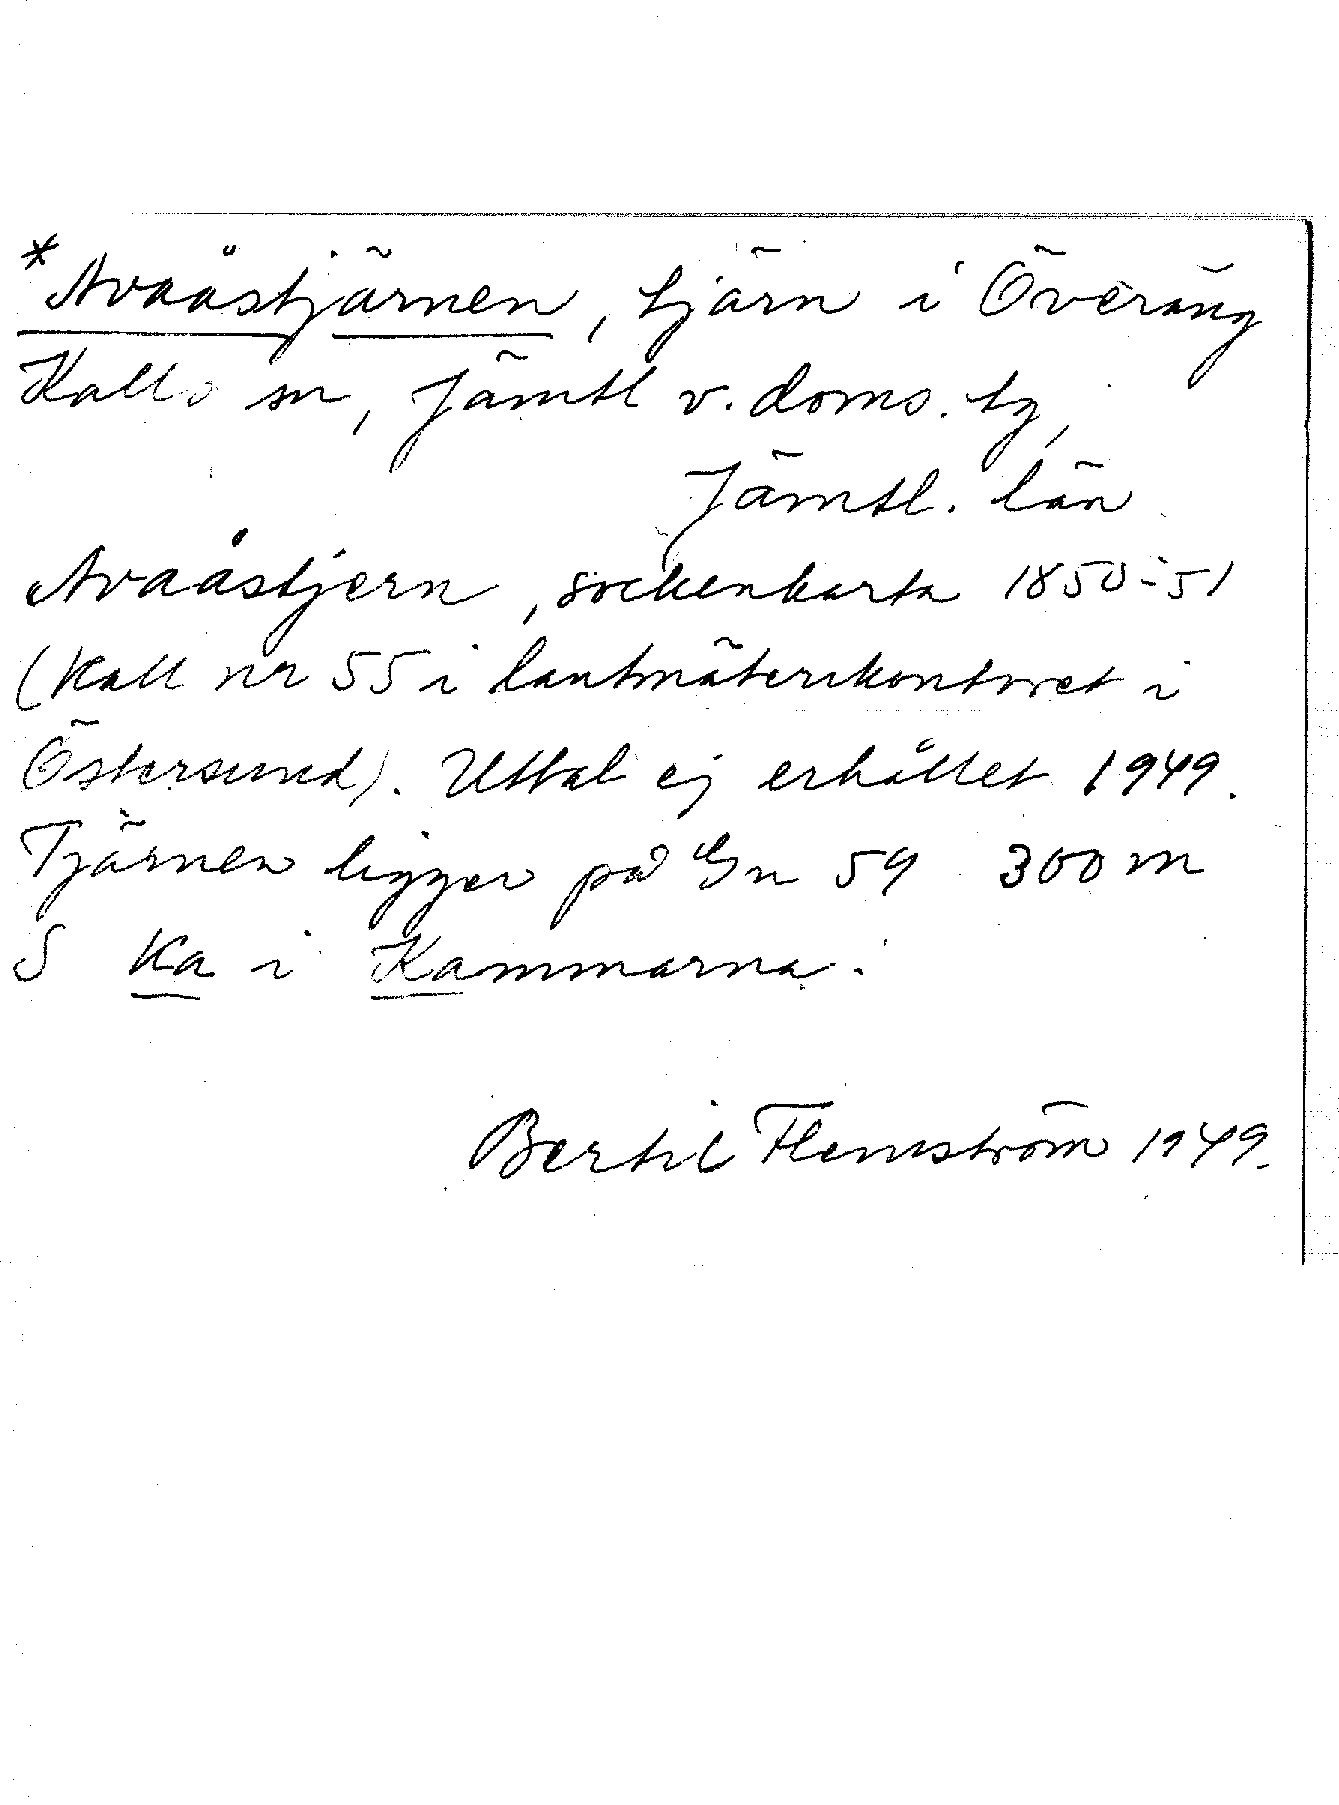 *Avaåstjärnen, tjärn i Överäng
Kalls sn, Jämtl v. doms. tg,
Jämtl. län
Avaåstjern, sockenkarta 1850-51
(Kall nr 55 i lantmäterikontoret i
Östersund). Uttal ej erhållet 1949.
Tjärnen ligger på Gn 59 300 m
S Ka i Kammarna.
Bertil Flemström 1949.